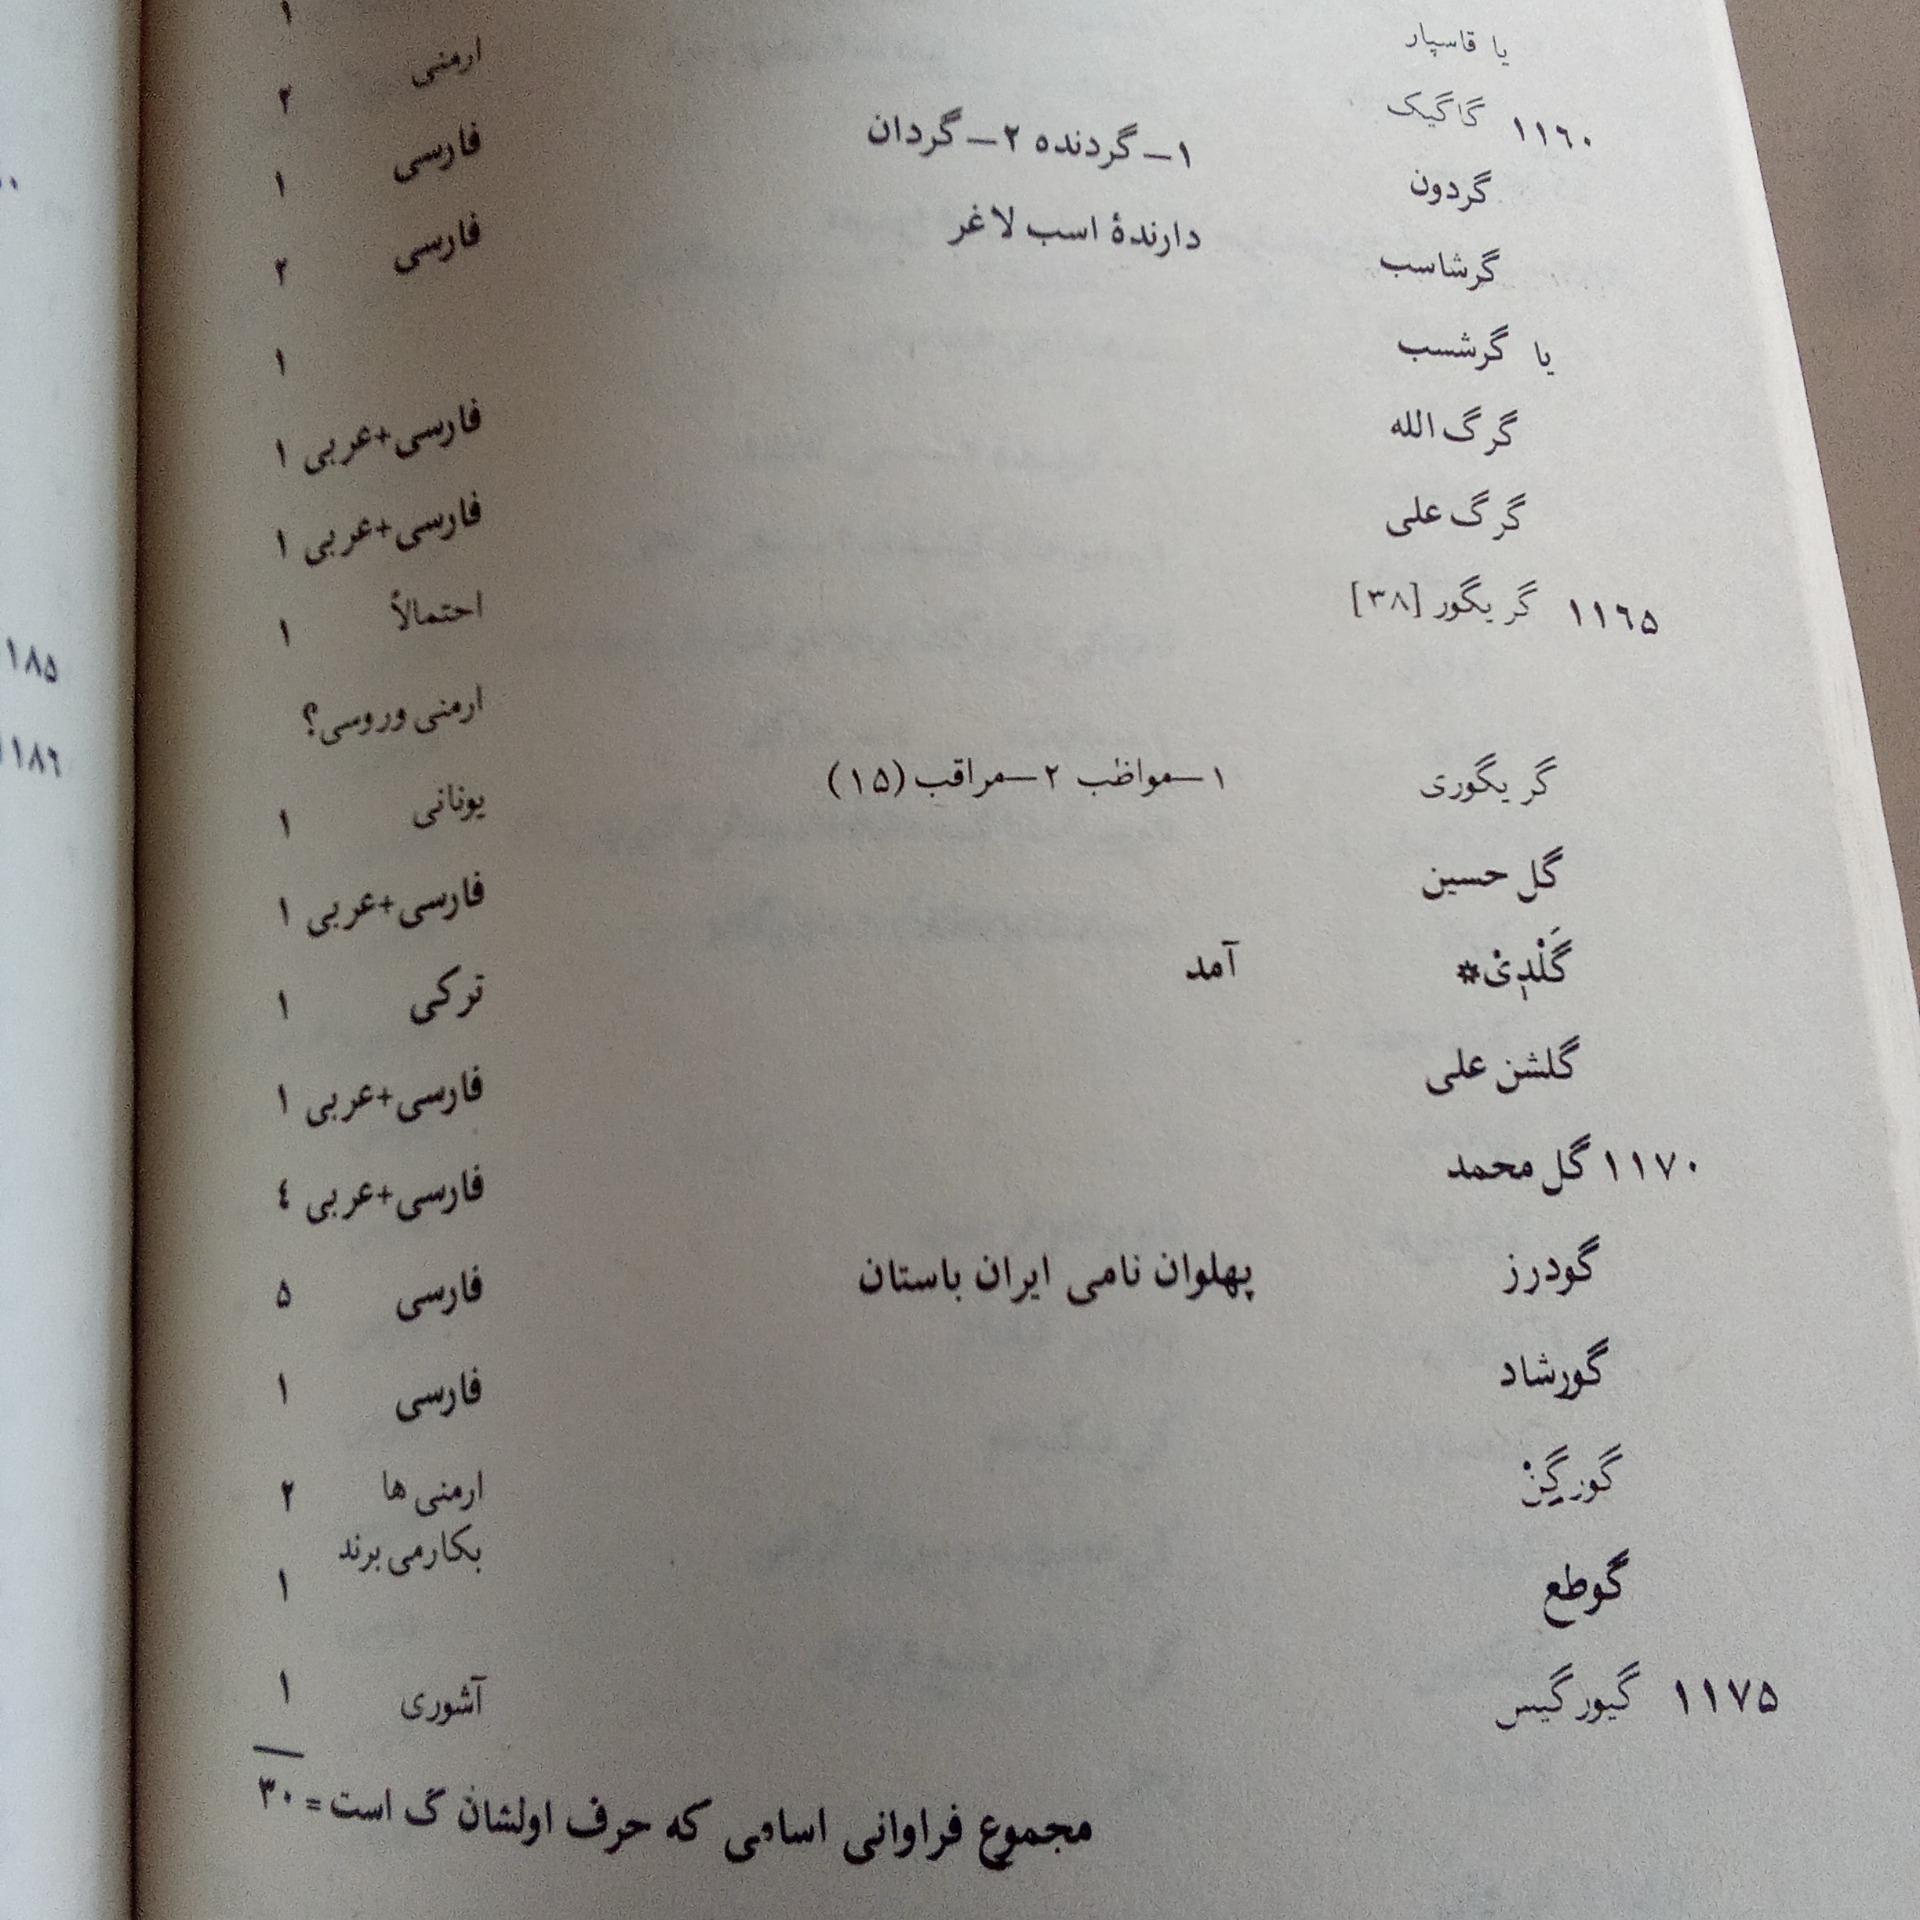 یا قاسپار ۱
۱۱۶۰ گاگیک ارمنی ۲
گردون ۱- گردنده ۲- گردان فارسی ۱
گرشاسب دارندهٔ اسب لاغر فارسی ۲
یا گرشسب ۱
گرگ الله فارسی+عربی ۱
گرگ علی فارسی+عربی ۱
۱۱۶۵ گریگور [۳۸] احتمالاً ۱
ارمنی وروسی؟
گریگوری ۱-مواظب ۲-مراقب (۱۵) یونانی ۱
گل حسین فارسی+عربی ۱
گَلْدیْ* آمد ترکی ۱
گلشن علی فارسی+عربی ۱
۱۱۷۰ گل محمد فارسی+عربی ۴
گودرز پهلوان نامی ایران باستان فارسی ۵
گورشاد فارسی ۱
گورگِنْ ارمنی ها ۲
بکارمی برند
گوطع ۱
۱۱۷۵ گیورگیس آشوری ۱
مجموع فراوانی اسامی که حرف اولشان گ است = ۳۰
۱۸۵
۱۱۸۶